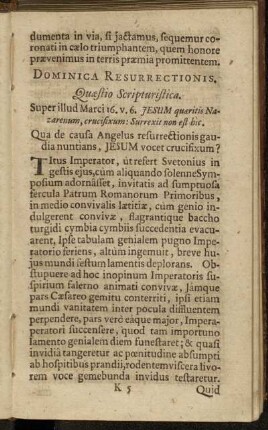 dumenta in via, si jactamus, sequemur co-
ronati in cælo triumphantem, quem honore
prævenimus in terris præmia promittentem.
DOMINICA RESURRECTIONIS.
Quæstio Scripturistica.
Super illud Marci 16. v. 6. JESUM quæritis Na-
zarenum, crucifixum: Surrexit non est hîc.
Qua de causa Angelus resurrectionis gau-
dia nuntians, JESUM vocet crucifixum?
TItus Imperator, út refert Svetonius in
gestis ejus, cùm aliquando solenne Sym-
posium adornâsset, invitatis ad sumptuosa
fercula Patrum Romanorum Primoribus,
in medio convivalis lætitiæ, cùm genio in-
dulgerent convivæ, flagrantique baccho
turgidi cymbia cymbiis succedentia evacu-
arent, Ipse tabulam genialem pugno Impe-
ratorio feriens, altùm ingemuit, breve hu-
jus mundi festum lamentis deplorans. Ob-
stupuere ad hoc inopinum Imperatoris su-
spirium falerno animati convivæ, Jámque
pars Cæsareo gemitu conterriti, ipsi etiam
mundi vanitatem inter pocula diffluentem
perpendere, pars verò eaque major, Impe-
peratori succensere, quod tam importuno
lamento genialem diem funestaret; & quasi
invidiâ tangeretur ac pœnitudine absumpti
ab hospitibus prandii, rodentem viscera livo-
rem voce gemebunda invidus testaretur.
K 5 Quid